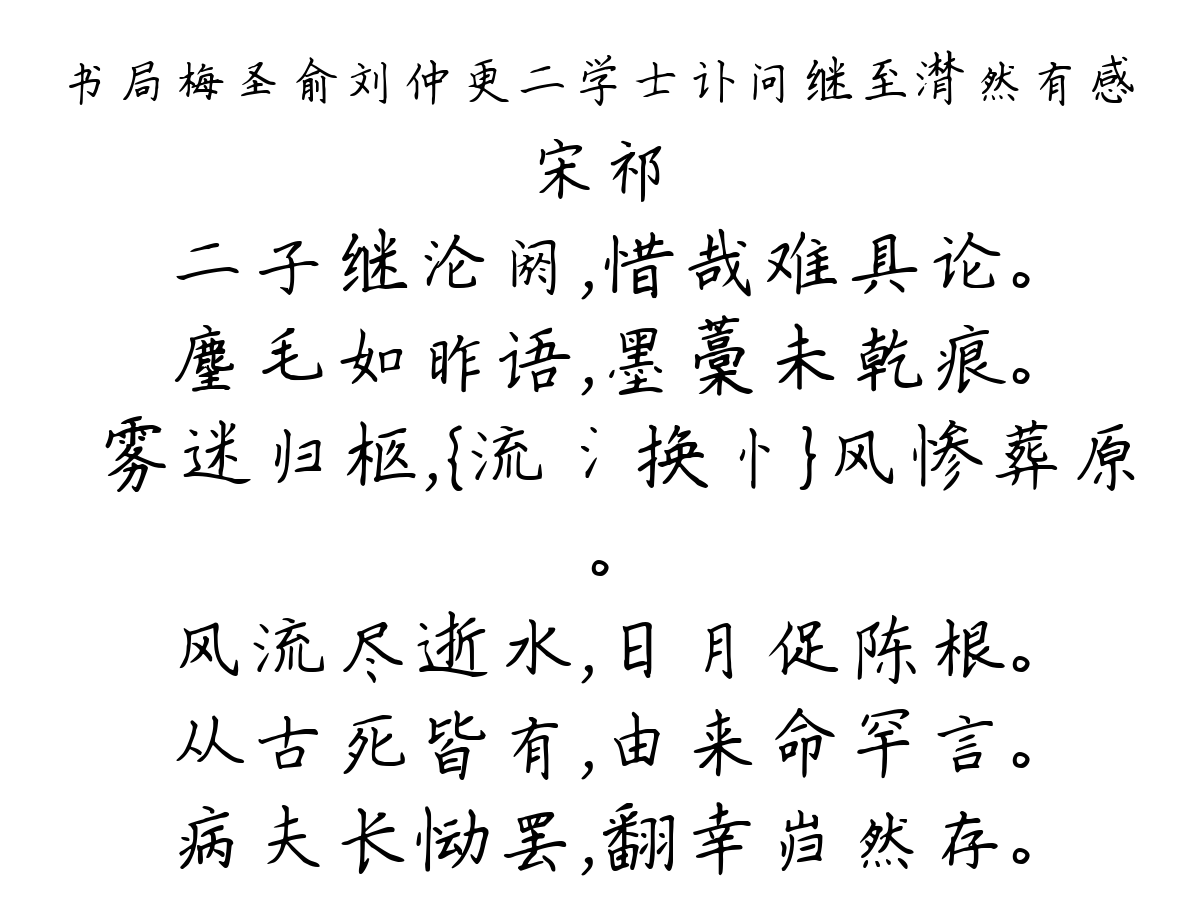 书局梅圣俞刘仲更二学士讣问继至潸然有感
宋祁
二子继沦阏,惜哉难具论。
麈毛如昨语,墨藁未乾痕。
雾迷归柩,{流氵换忄}风惨葬原
。
风流尽逝水,日月促陈根。
从古死皆有,由来命罕言。
病夫长恸罢,翻幸岿然存。